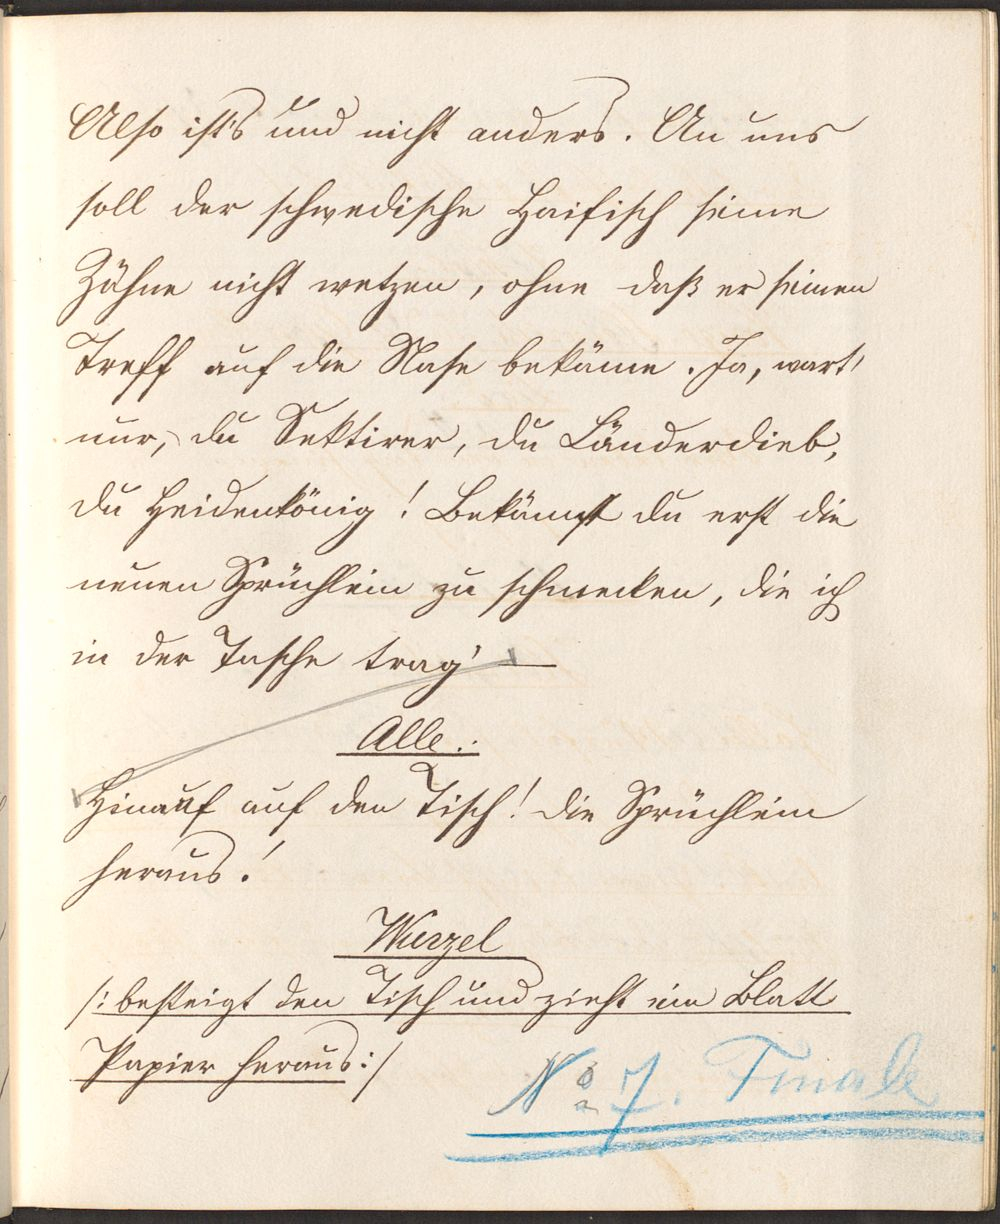 Also ist's und nicht anders. An uns
soll der schwedische Haifisch seine
Zähne nicht wetzen, ohne daß er seinen
Treff auf die Nase bekäme. Ja, wart'
nur, du Sektirer, du Länderdieb,
du Heidenkönig! Bekämst du erst die
neuen Sprüchlein zu schmecken, die ich
in der Tasche trag' —
Alle.:
Hinauf auf den Tisch! Die Sprüchlein
heraus!
Wurzel
/: besteigt den Tisch und zieht ein Blatt
Papier heraus :/
No 7. Finale